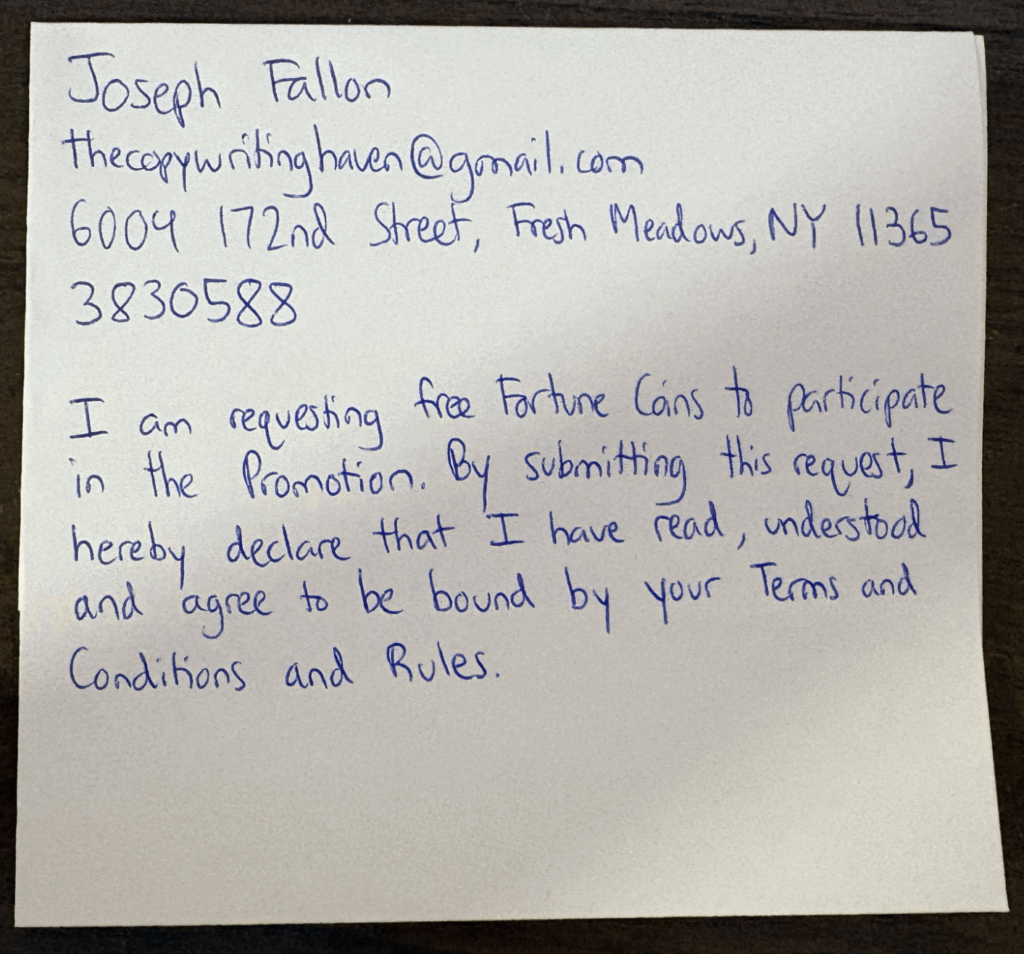 Joseph Fallon
thecopywritinghaven@gmail.com
6004 172nd Street, Fresh Meadows, NY 11365
3830588
I am requesting free Fortune Coins to participate
in the Promotion. By submitting this request, I
hereby declare that I have read, understood
and agree to be bound by your Terms and
Conditions and Rules.